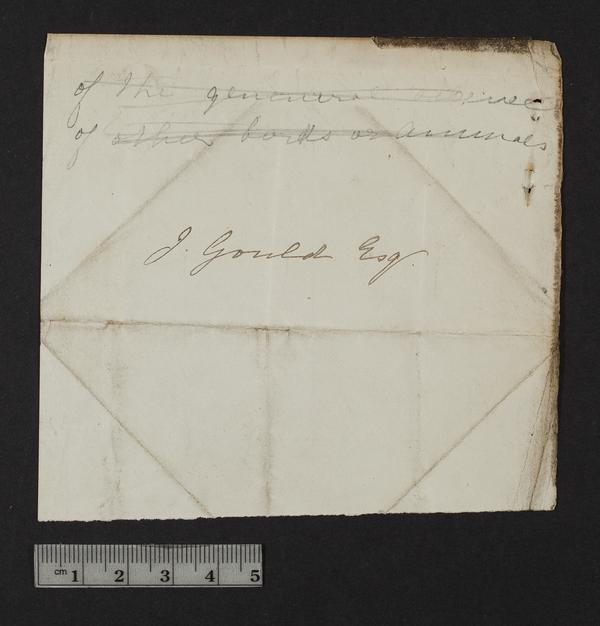 of the
of other birds or animals
J. Gould Esq.
cm 1 2 3 4 5